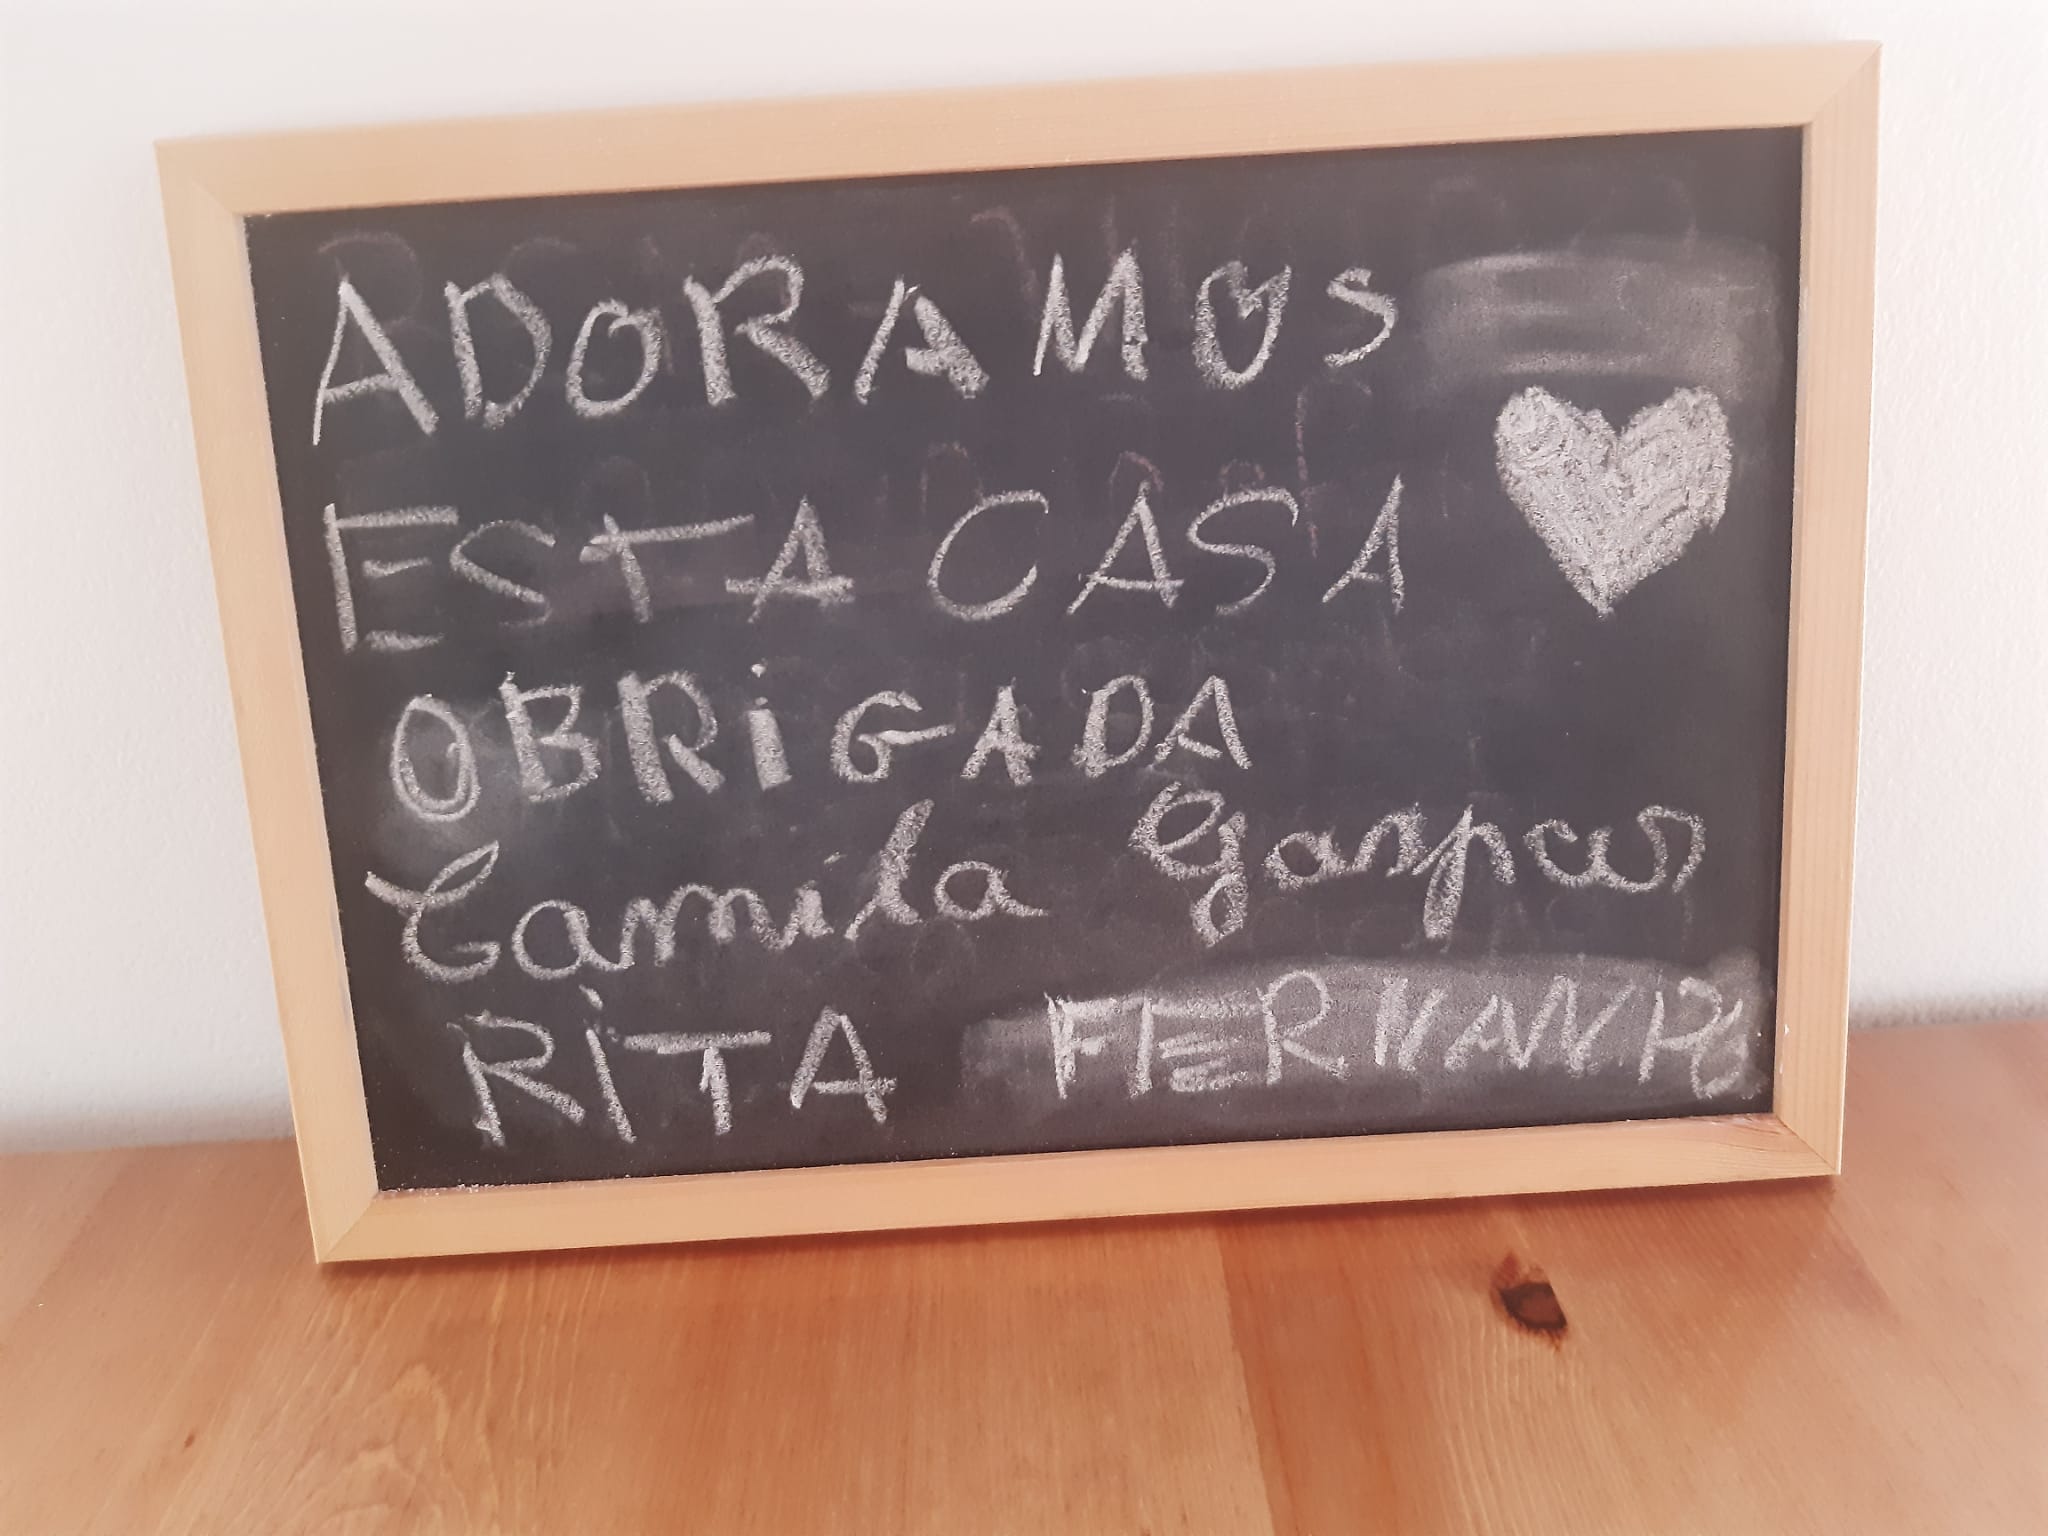 ADORAMOS
ESTA CASA
OBRiGADA
Camila Gaspar
RiTA FERNANDO